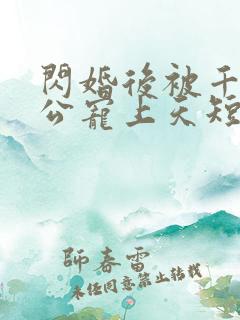 閃婚後被千
公寵上天短
師春雷
未經同意禁止轉載